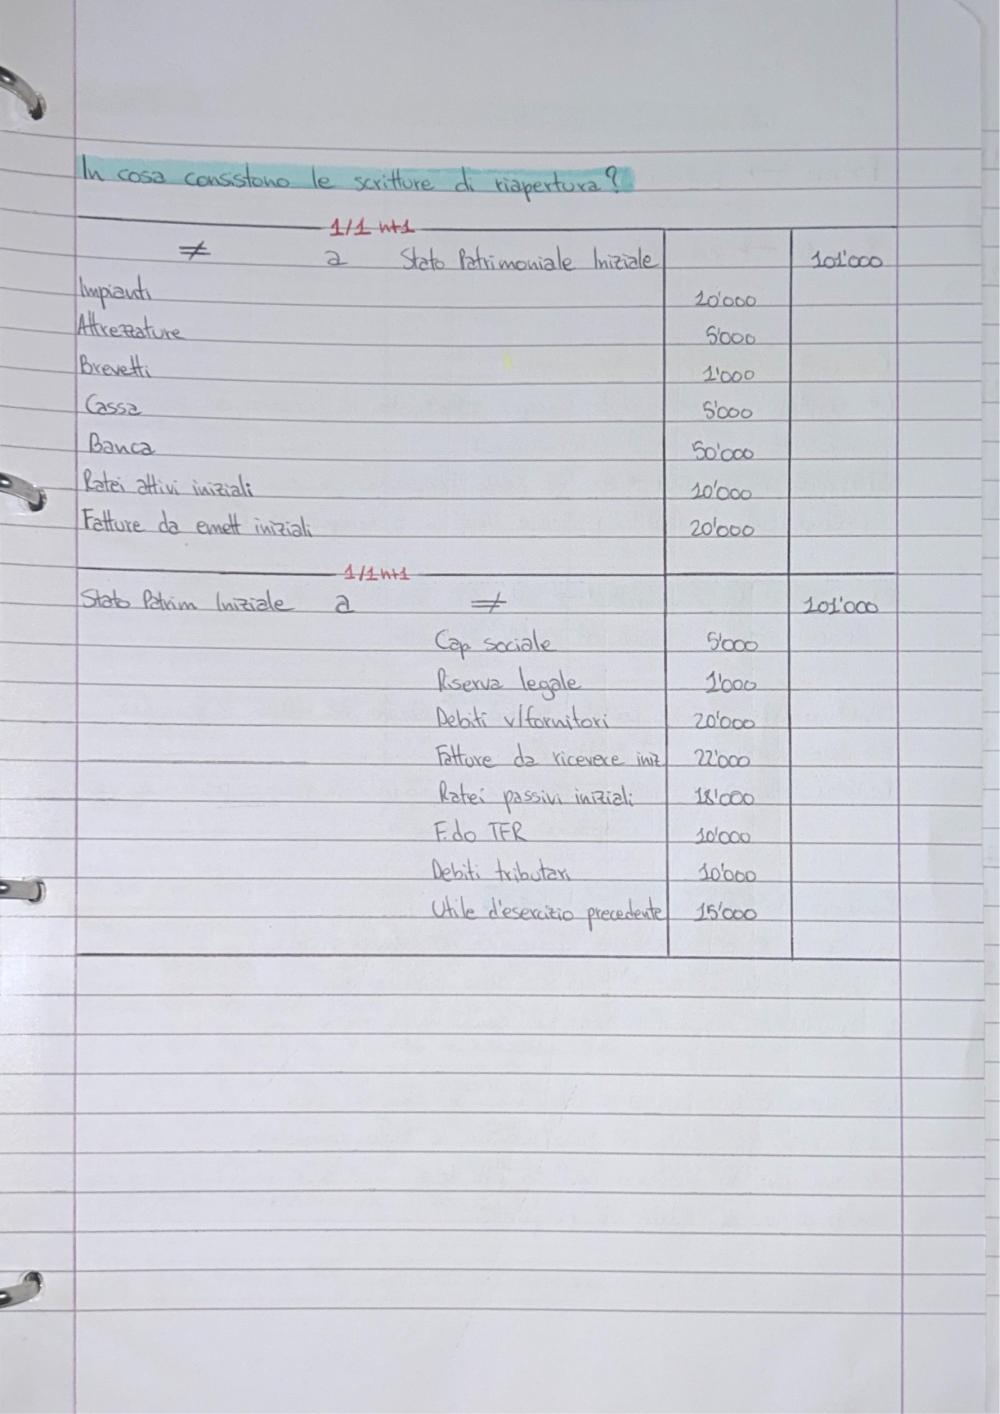 In cosa consistono le scritture di riapertura?
1/1 n+1
≠ a Stato Patrimoniale Iniziale 101'000
Impianti 10'000
Attrezzature 5'000
Brevetti 1'000
Cassa 5'000
Banca 50'000
Ratei attivi iniziali 10'000
Fatture da emett iniziali 20'000
1/1 n+1
Stato Patrim Iniziale a ≠ 101'000
Cap sociale 5'000
Riserva legale 1'000
Debiti v/fornitori 20'000
Fatture da ricevere iniz 22'000
Ratei passivi iniziali 18'000
F.do TFR 10'000
Debiti tributari 10'000
Utile d'esercizio precedente 15'000